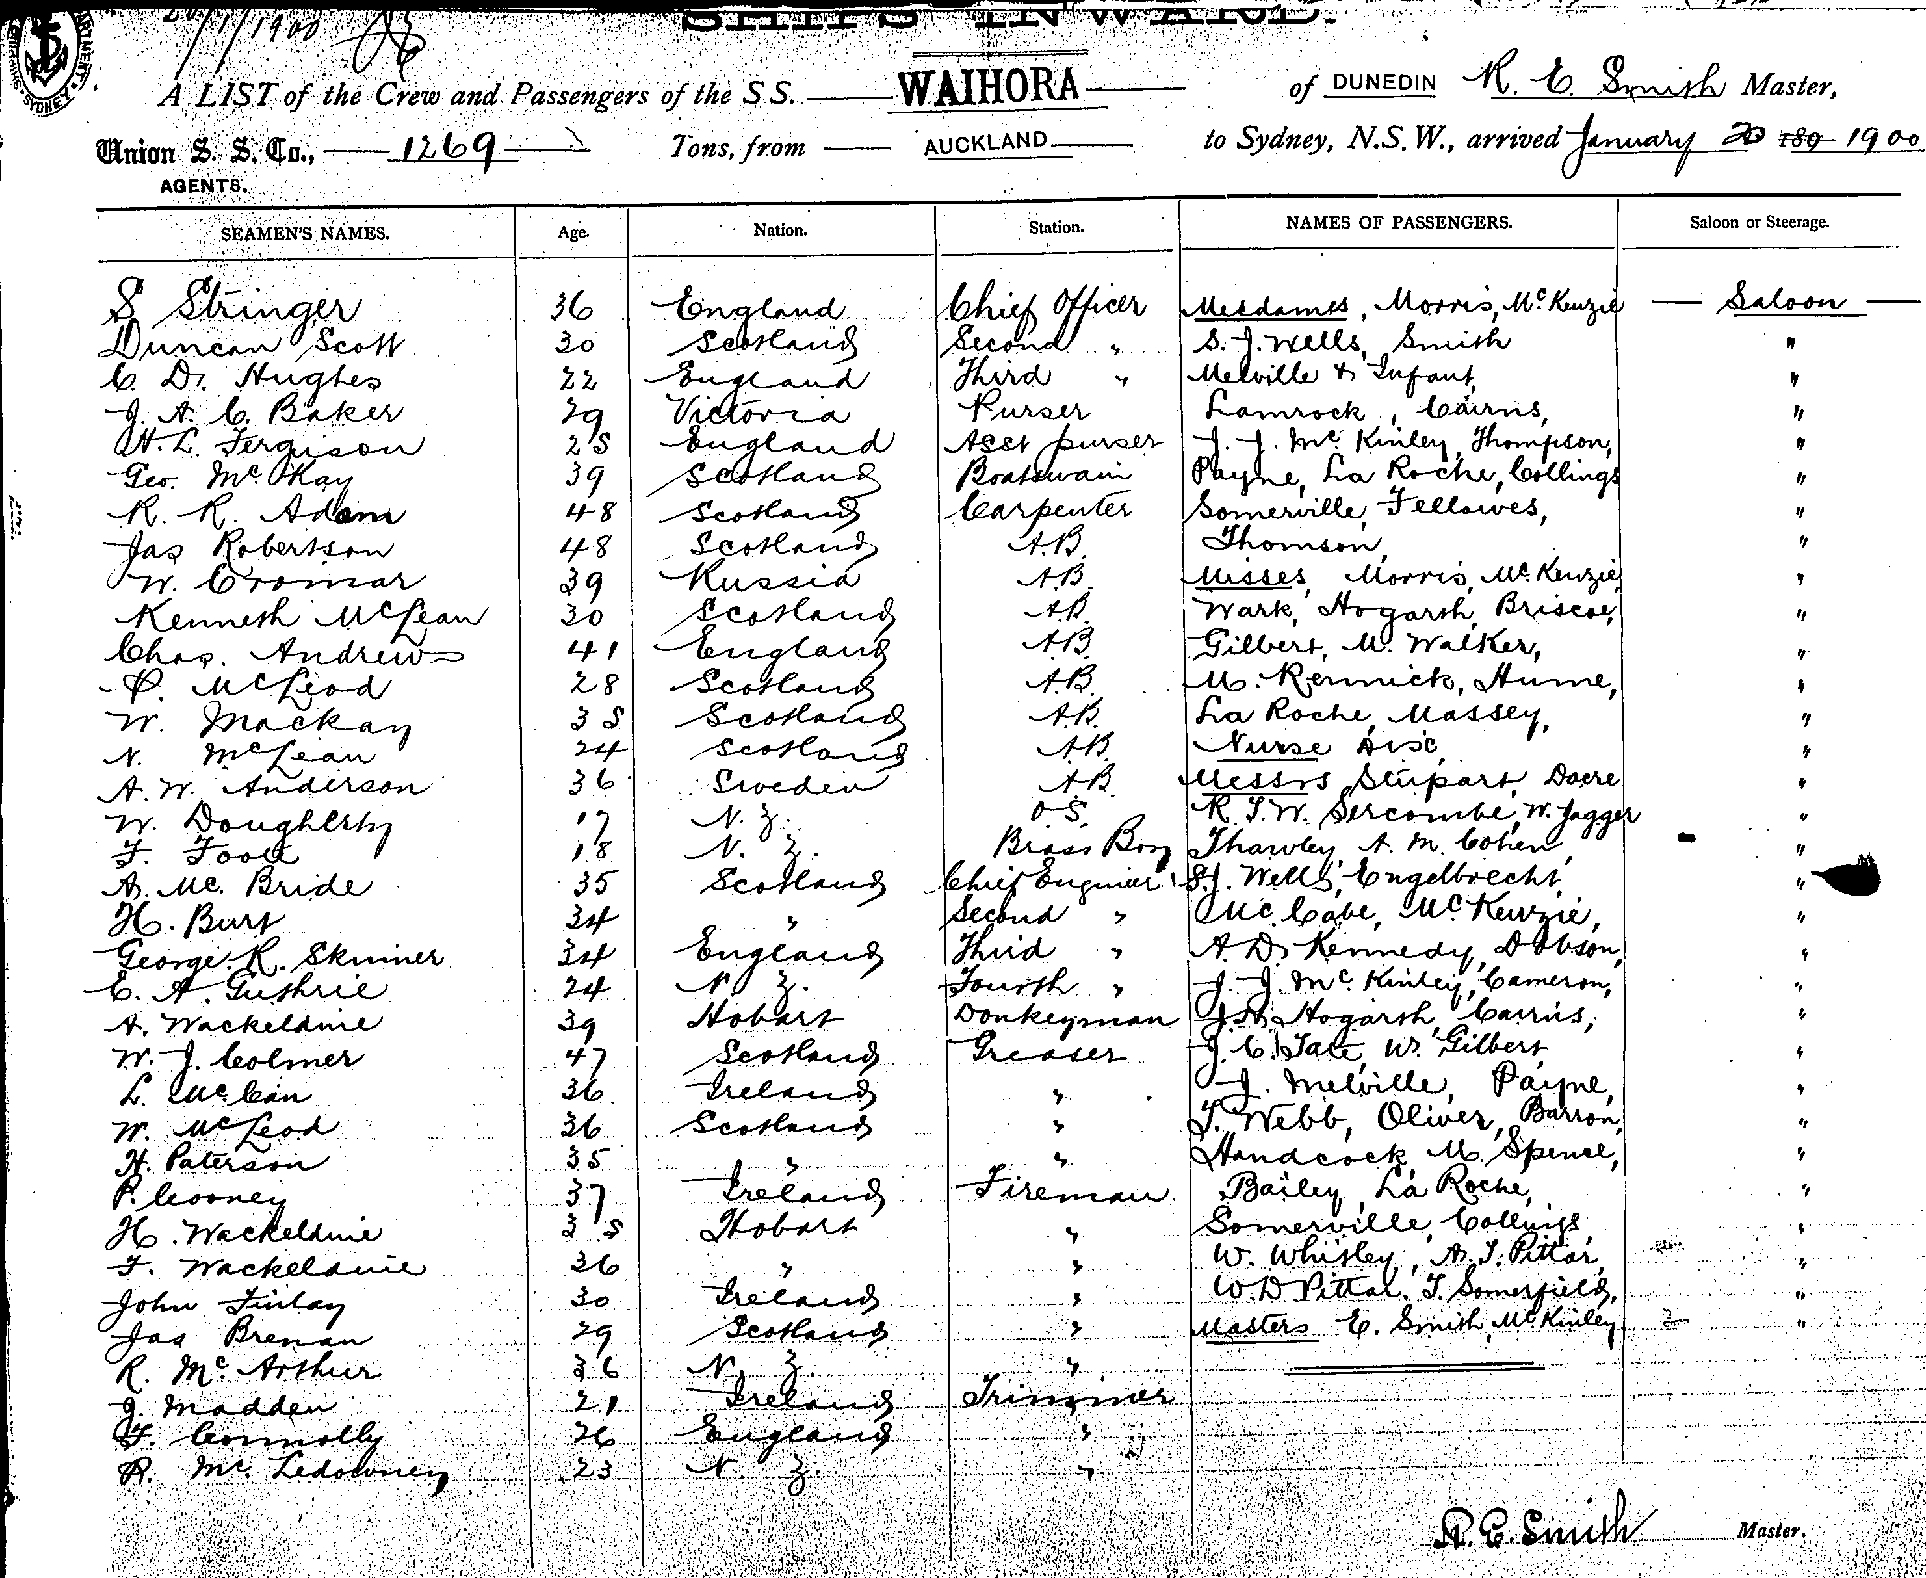 SHIPS INWARD.
20/1/1900
SYDNEY
A LIST of the Crew and Passengers of the S S. WAIHORA of DUNEDIN R. E. Smith Master,
Union S. S. Co., 1269 Tons, from AUCKLAND to Sydney, N.S.W., arrived January 20 189 1900
AGENTS.
SEAMEN'S NAMES. Age. Nation. Station. NAMES OF PASSENGERS. Saloon or Steerage.
S Stringer 36 England Chief Officer Mesdames, Morris, McKenzie Saloon
Duncan Scott 30 Scotland Second " S. J. Wells, Smith "
C. D. Hughes 22 England Third " Melville & Infant, "
J. A. C. Baker 29 Victoria Purser Lamrock, Cairns, "
H. L. Ferguson 25 England Asst purser J. J. McKinley, Thompson, "
Geo. McKay 39 Scotland Boatswain Payne, La Roche, Collings "
R. R. Adam 48 Scotland Carpenter Somerville, Fellowes, "
Jas Robertson 48 Scotland A.B. Thomson, "
W. Cromar 39 Russia A.B. Misses, Morris, McKenzie, "
Kenneth McLean 30 Scotland A.B. Wark, Hogarth, Briscoe, "
Chas. Andrews 41 England A.B. Gilbert, M. Walker, "
P. McLeod 28 Scotland A.B. M. Rennick, Hume, "
W. Mackay 35 Scotland A.B. La Roche, Massey, "
N. McLean 24 Scotland A.B. Nurse "
A. W. Anderson 36 Sweden A.B. Messrs Stupart, Dacre "
W. Dougherty 17 N. Z. O S. R. T. W. Sercombe, W. Jagger "
F. 18 N. Z. Brass Boy Thawley, A. M. Cohen, "
A. Mc. Bride 35 Scotland Chief Engineer S. J. Wells, Engelbrecht, "
H. Burt 34 " Second " McCabe, McKenzie, "
George. R. Skinner 34 England Third " A. D. Kennedy, Dobson, "
E. A. Guthrie 24 N. Z. Fourth " J. J. McKinley, Cameron, "
A. Wackeldine 39 Hobart Donkeyman J. H. Hogarth, Cairns, "
W. J. Colmer 47 Scotland Greaser J. C. Tate, W. Gilbert, "
L. McCan 36 Ireland " J. Melville, Payne, "
W. McLeod 36 Scotland " T. Webb, Oliver, Barron, "
H. Paterson 35 " " Handcock, M. Spence, "
P. Cooney 37 Ireland Fireman Bailey, La Roche, "
H. Wackeldine 35 Hobart " Somerville, Collings, "
F. Wackeldine 36 " " W. Whitley, A. T. Pittar, "
John Finlay 30 Ireland " W. D Pittar. T. Somerfield, "
Jas Brenan 29 Scotland " Masters E. Smith, McKinley "
R. McArthur 36 N. Z. "
J. Madden 21 Ireland Trimmer
F. Connolly 26 England "
R. Mc. Ledowney 23 N. Z. "
R. E. Smith Master.